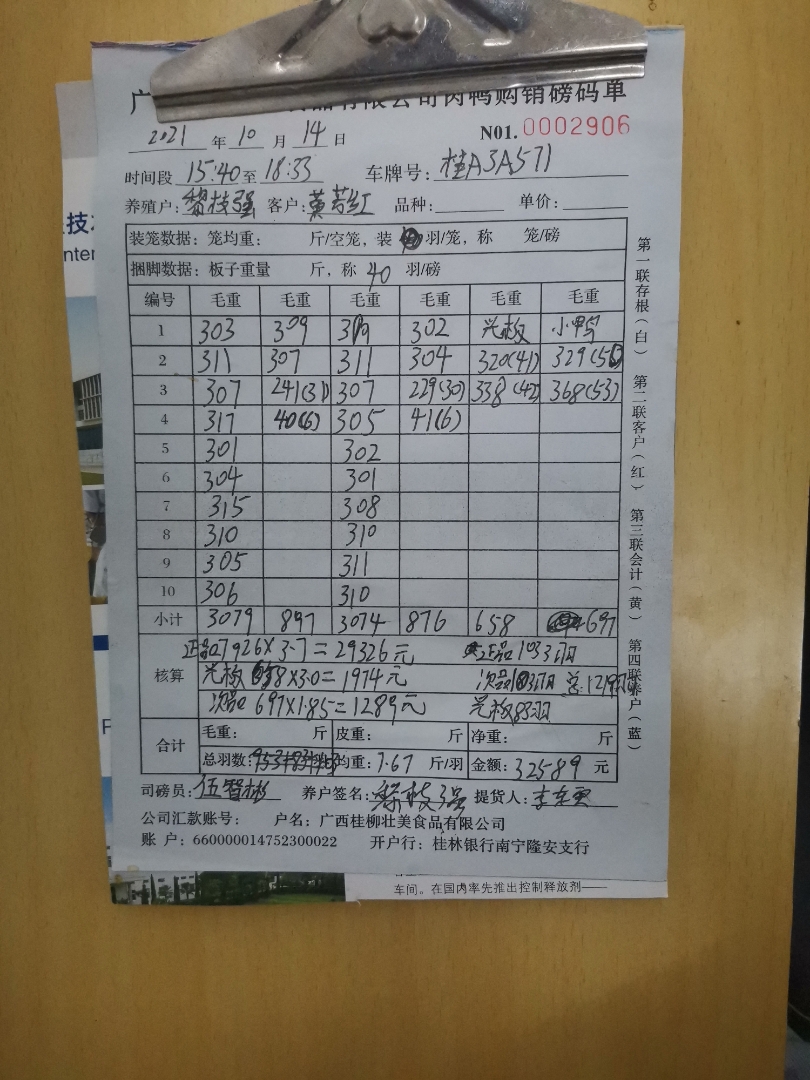 广 食品有限公司肉鸭购销磅码单
2021 年 10 月 14 日 N01. 0002906
时间段 15:40 至 18:33 车牌号: 桂A3A571
养殖户: 黎枝强 客户: 黄芳红 品种: 单价:
装笼数据: 笼均重: 斤/空笼, 装 羽/笼, 称 笼/磅
捆脚数据: 板子重量 斤, 称 40 羽/磅
编号 毛重 毛重 毛重 毛重 毛重 毛重
1 303 309 309 302 小鸭
2 311 307 311 304 320(41) 329(50)
3 307 241(31) 307 229(30) 338(42) 368(53)
4 317 40(6) 305 41(6)
5 301 302
6 304 301
7 315 308
8 310 310
9 305 311
10 306 310
小计 3079 897 3074 876 658 697
核算
正品7926×3.7=29326元 正品1033羽
658×3.0=1974元 次品103羽 总1219羽
次品697×1.85=1289元 83羽
合计
毛重: 斤 皮重: 斤 净重: 斤
总羽数: 均重: 7.67 斤/羽 金额: 32589 元
司磅员: 伍智彬 养户签名: 黎枝强 提货人:
公司汇款账号: 户名: 广西桂柳壮美食品有限公司
账 户: 660000014752300022 开户行: 桂林银行南宁隆安支行
第一联存根(白) 第二联客户(红) 第三联会计(黄) 第四联养户(蓝)
技
nter
车间。在国内率先推出控制释放剂——